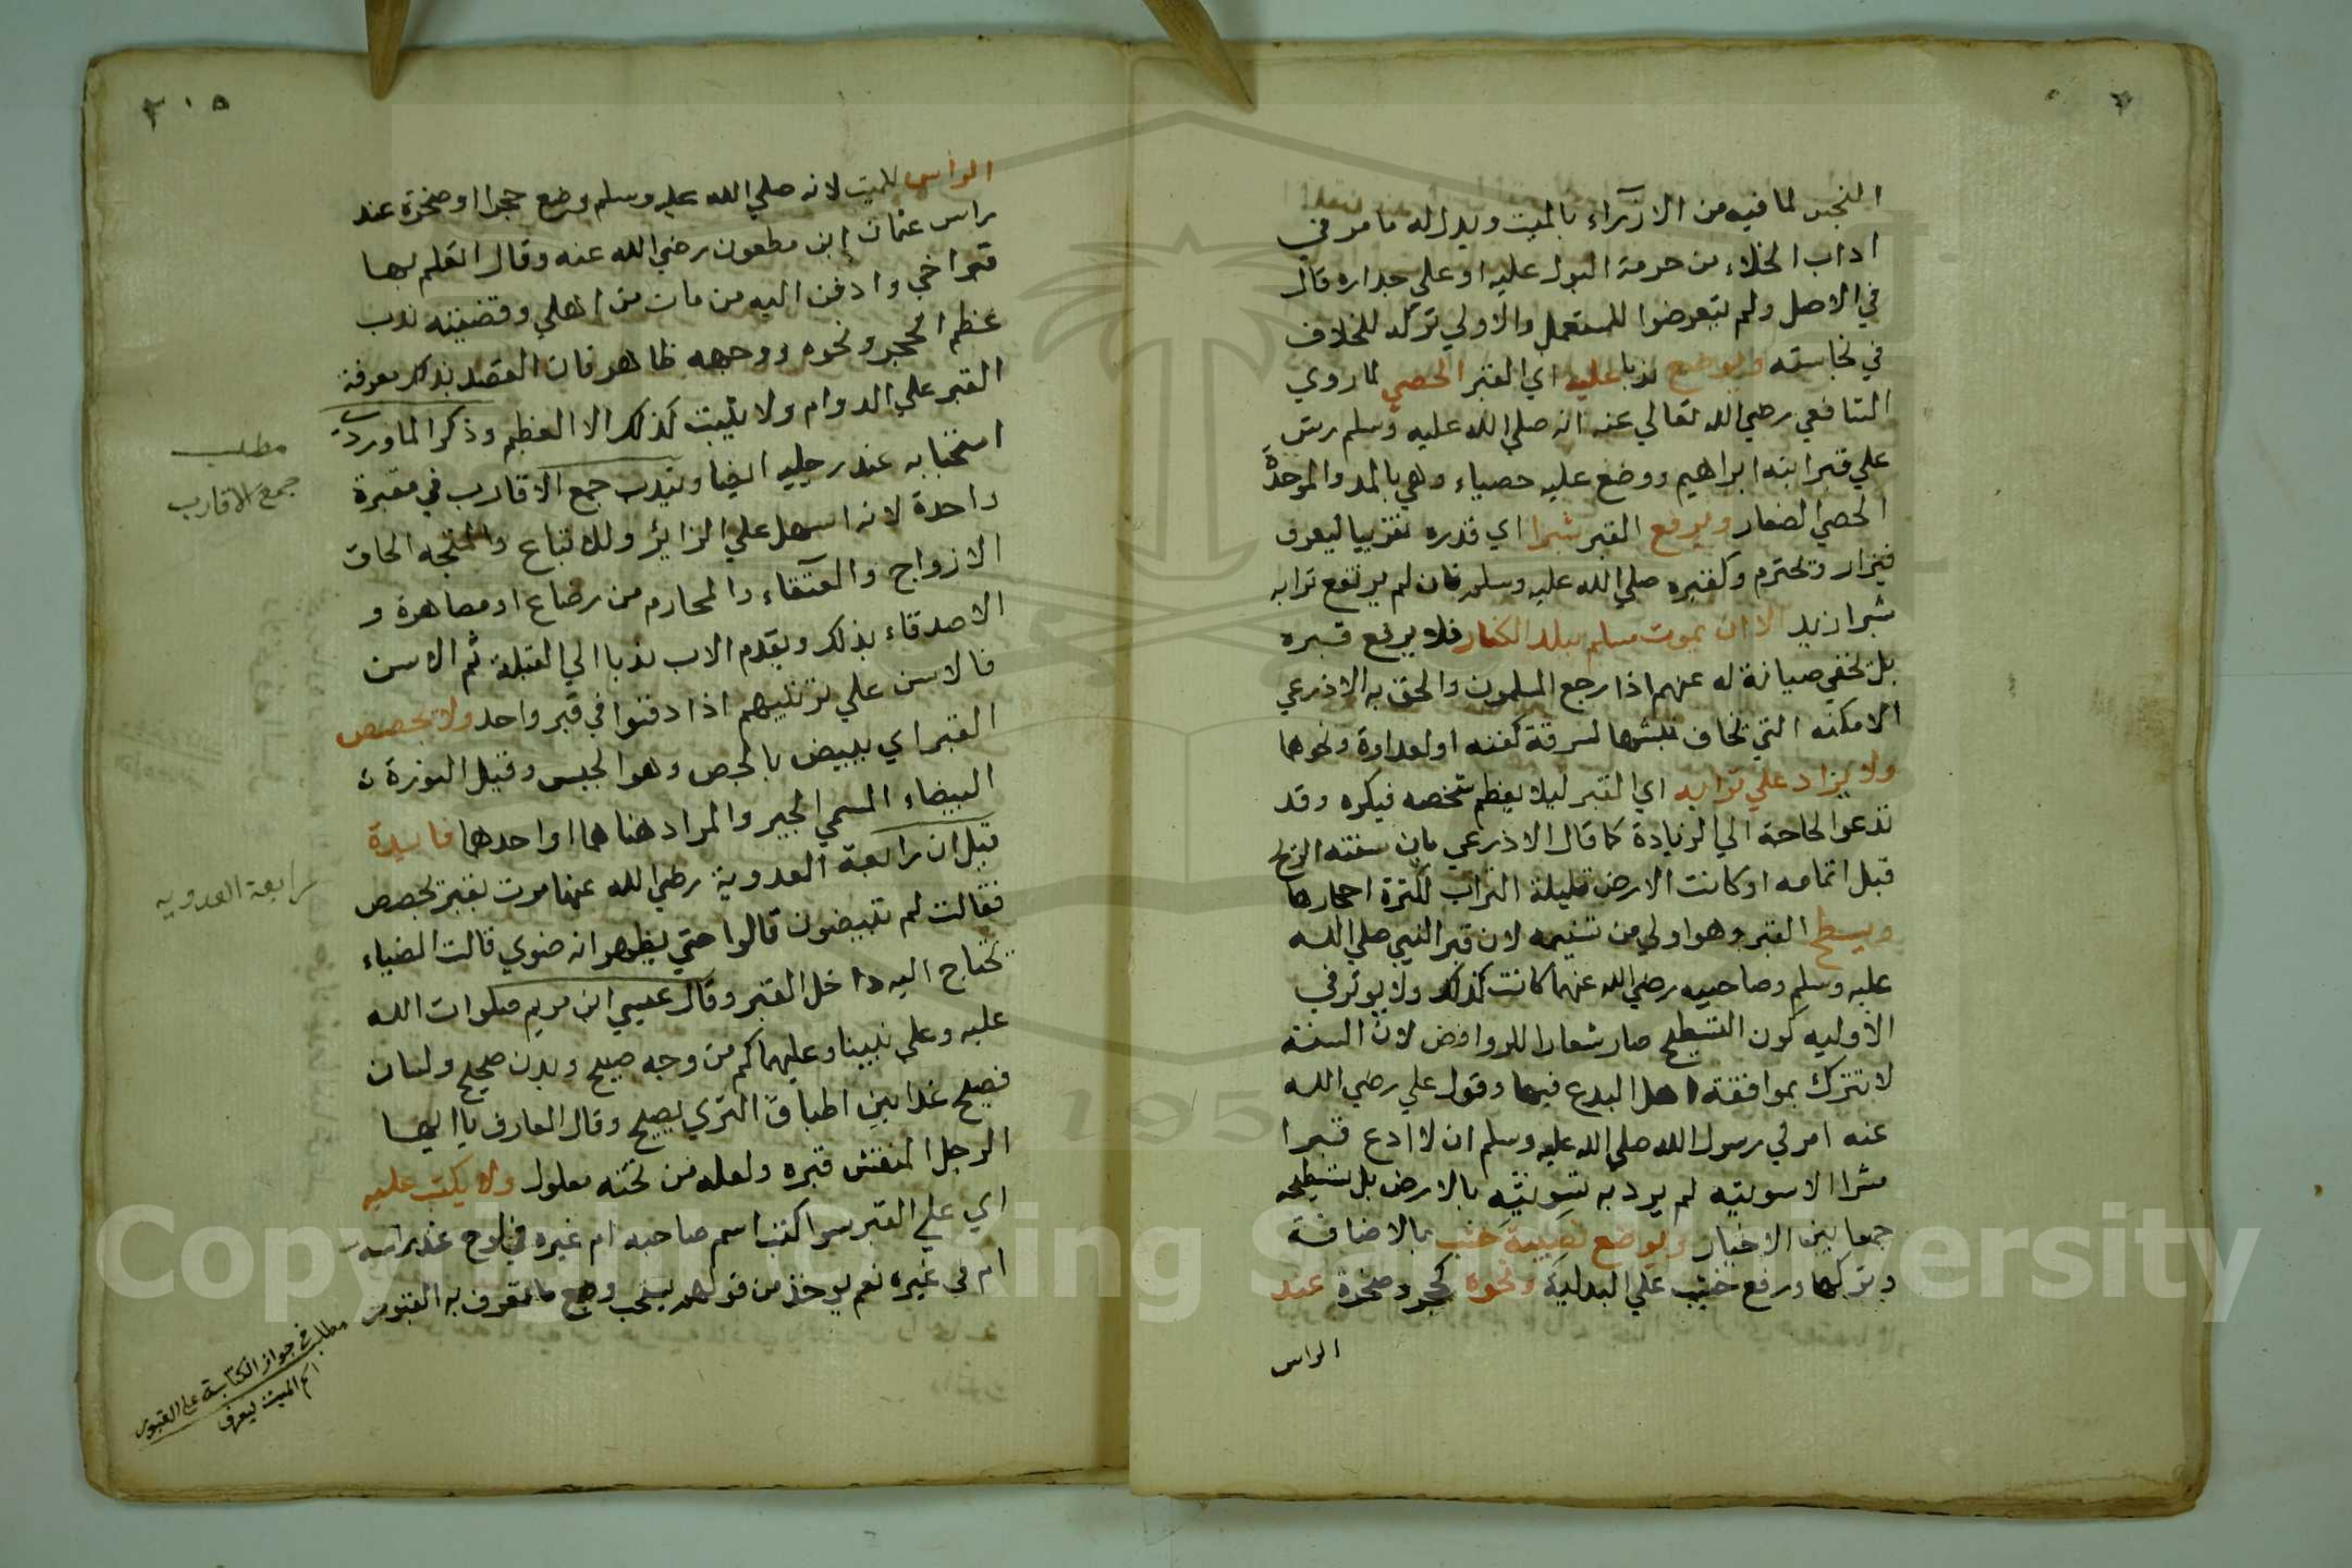 النجس لما فيه من الازراء بالميت ويدل له ما مر في
اداب الخلاء من حرمة البول عليه او علي جداره قال
في الاصل ولم يتعرضوا للمستعمل والاولي تركه للخلاف
في نجاسته ويوضع ندبا عليه اي القبر الحصي لما روي
الشافعي رضي الله تعالي عنه انه صلي الله عليه وسلم رش
علي قبر ابنه ابراهيم ووضع عليه حصباء وهي بالمد والموحدة
الحصي الصغار ويرفع القبر شبرا اي قدره تقريبا ليعرف
فيزار ويحترم وكقبره صلي الله عليه وسلم فان لم يرتفع ترابه
شبرا زيد الا ان يموت مسلم ببلد الكفار فلا يرفع قبره
بل يخفي صيانة له عنهم اذا رجع المسلمون والحق به الاذرعي
الامكنه التي يخاف نبشها لسرقة كفنه او لعداوة ونحوها
ولا يزاد علي ترابه اي القبر ليلا يعظم شخصه فيكره وقد
تدعوا لحاجة الي الزيادة كما قال الاذرعي بان سفته الريح
قبل اتمامه او كانت الارض قليلة التراب لكثرة احجارها
ويسطح القبر وهو اولي من تسنيمه لان قبر النبي صلي الله
عليه وسلم وصاحبيه رضي الله عنهما كانت كذلك ولا يوثر في
الاوليه كون التسطيح صار شعارا للروافض لان السنة
لا تترك بموافقة اهل البدع فيها وقول علي رضي الله
عنه امرني رسول الله صلي الله عليه وسلم ان لا ادع قبرا
مشرا الا سويته لم يرد به تسويته بالارض بل تسطيحه
جمعا بين الاخبار ويوضع نصيبة خشب بالاضافة
وبتركها ورفع خشب علي البدلية ونحوه كحجر وصخرة عند
الراس
٢٠٥
الراس للميت لانه صلي الله عليه وسلم وضع حجرا او صخرة عند
راس عثمان ابن مطعون رضي الله عنه وقال اتعلم بها
قبر اخي وادفن اليه من مات من اهلي وقضيته ندب
عظم الحجر ونحوه ووجهه ظاهر فان القصد بذلك معرفة
القبر علي الدوام ولا يثبت كذلك الا العظيم وذكر الماوردي
استحبابه عند رجليه ايضا ويندب جمع الاقارب في مقبرة
واحدة لانه اسهل علي الزائر وللاتباع والمتجه الحاق
الازواج والعتقاء والمحارم من رضاع او مصاهرة و
الاصدقاء بذلك ويقدم الاب ندبا الي القبلة ثم الاسن
فالاسن علي ترتيبهم اذا دفنوا في قبر واحد ولا يجصص
القبر اي يبيض بالجص وهو الجبس وقيل النورة
البيضاء المسمي الجير والمراد هنا هما او احدهما فايدة
قيل ان رابعة العدوية رضي الله عنها مرت بقبر يجصص
فقالت لم تبيضون قالوا حتي يظهر انه ضوي قالت الضياء
يحتاج اليه داخل القبر وقال عيسي ابن مريم صلوات الله
عليه وعلي نبينا وعليهما كم من وجه صبيح وبدن صحيح ولسان
فصيح غدا بين اطباق الثري يصيح وقال العارف يا ايها
الرجل المنقش قبره ولعله من تحته معلول ولا يكتب عليه
اي علي القبر سوا كتب اسم صاحبه ام غيره في لوح عند راسه
ام في غيره نعم يوخذ من قولهم يستحب وضع ما يعرف به القبور
مطلب
جمع الاقارب
رابعة العدويه
مطلب في جواز الكتابة على القبور
اسم الميت ليعرف
Copyright © King Saud University
1957